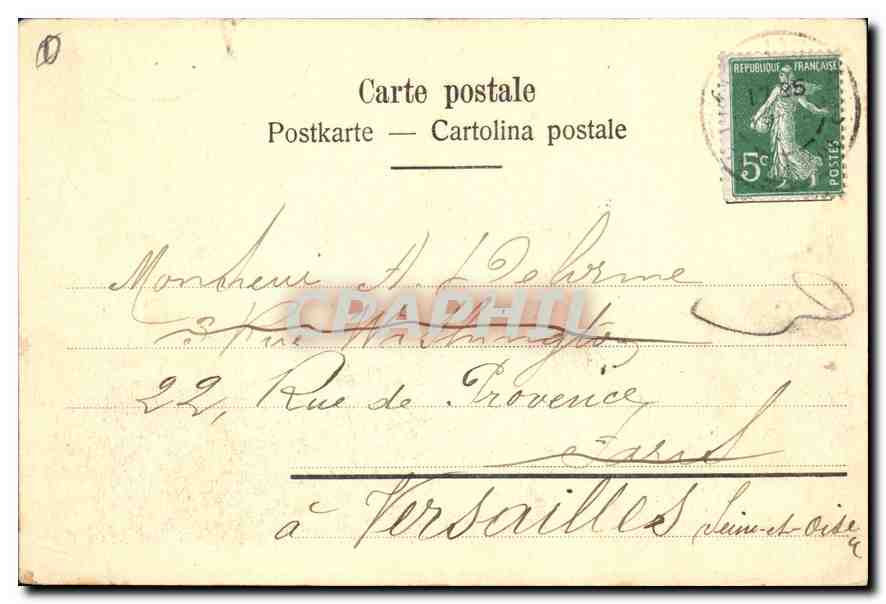 Carte postale
Postkarte — Cartolina postale
REPUBLIQUE FRANÇAISE
5c
POSTES
Monsieur A. Delorme
3 Rue Washington
22, Rue de Provence
Paris
à Versailles Seine-et-Oise
CPAPHIL